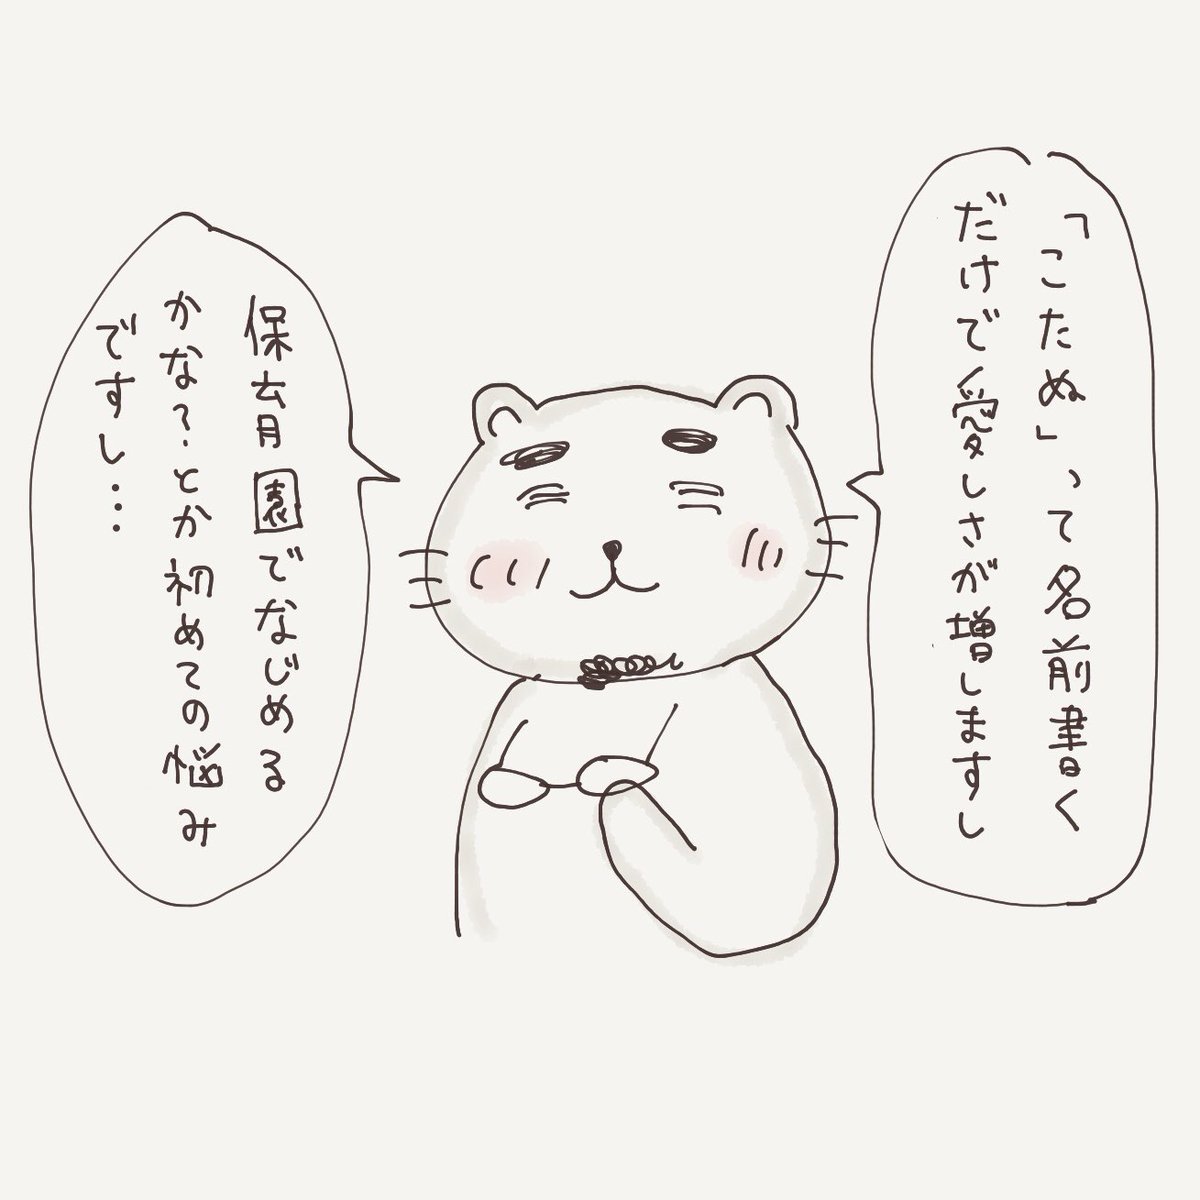 「こたぬ」って名前書く
だけで愛しさが増しますし
保育園でなじめる
かな？とか初めての悩み
ですし…